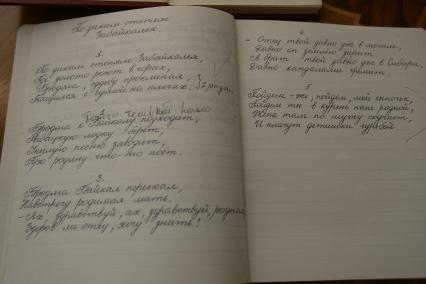 По диким степям
Забайкалья.
1.
По диким степям Забайкалья,
Где золото роют в горах,
Бродяга, судьбу проклиная,
Тащился с сумой на плечах. } 2 раза.
2
Бродяга к Байкалу подходит,
Рыбацкую лодку берёт,
Унылую песню заводит,
Про родину что-то поёт.
3.
Бродяга Байкал переехал,
Навстречу родимая мать.
- Ах, здравствуй, ах, здравствуй, родная,
Здоров ли отец, хочу знать?
4.
- Отец твой давно уж в могиле,
Давно он землёю зарыт.
А брат твой давно уж в Сибири,
Давно кандалами гремит.
5.
Пойдём-же, пойдём, мой сыночек,
Пойдём ты в курень наш родной,
Жена там по мужу скучает,
И плачут детишки гурьбой